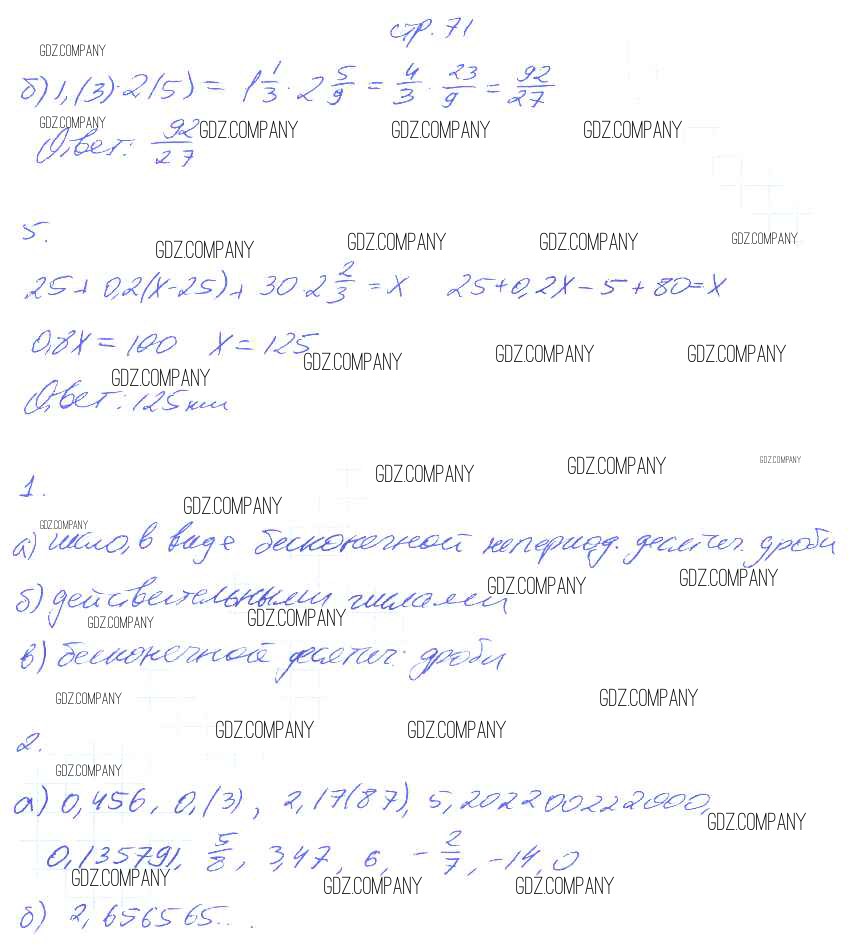 стр. 71
GDZ.COMPANY
б) 1,(3)·2(5) = 1 1/3 · 2 5/9 = 4/3 · 23/9 = 92/27
GDZ.COMPANY GDZ.COMPANY GDZ.COMPANY GDZ.COMPANY
Ответ: 92/27
5.
GDZ.COMPANY GDZ.COMPANY GDZ.COMPANY GDZ.COMPANY
25 + 0,2(x-25) + 30·2 2/3 = x 25+0,2x-5+80=x
0,8x = 100 x = 125
GDZ.COMPANY GDZ.COMPANY GDZ.COMPANY GDZ.COMPANY
Ответ: 125 км
GDZ.COMPANY GDZ.COMPANY GDZ.COMPANY
1.
GDZ.COMPANY
GDZ.COMPANY
а) число, в виде бесконечной непериод. десятич. дроби
б) действительными числами
GDZ.COMPANY GDZ.COMPANY GDZ.COMPANY GDZ.COMPANY
в) бесконечной десятич. дроби
GDZ.COMPANY GDZ.COMPANY
GDZ.COMPANY GDZ.COMPANY
2.
GDZ.COMPANY
а) 0,456, 0,(3), 2,17(87), 5,2022200222000,
GDZ.COMPANY
0,135791, 5/8, 3,47, 6, - 2/7, -14, 0
GDZ.COMPANY GDZ.COMPANY GDZ.COMPANY
б) 2,656565...